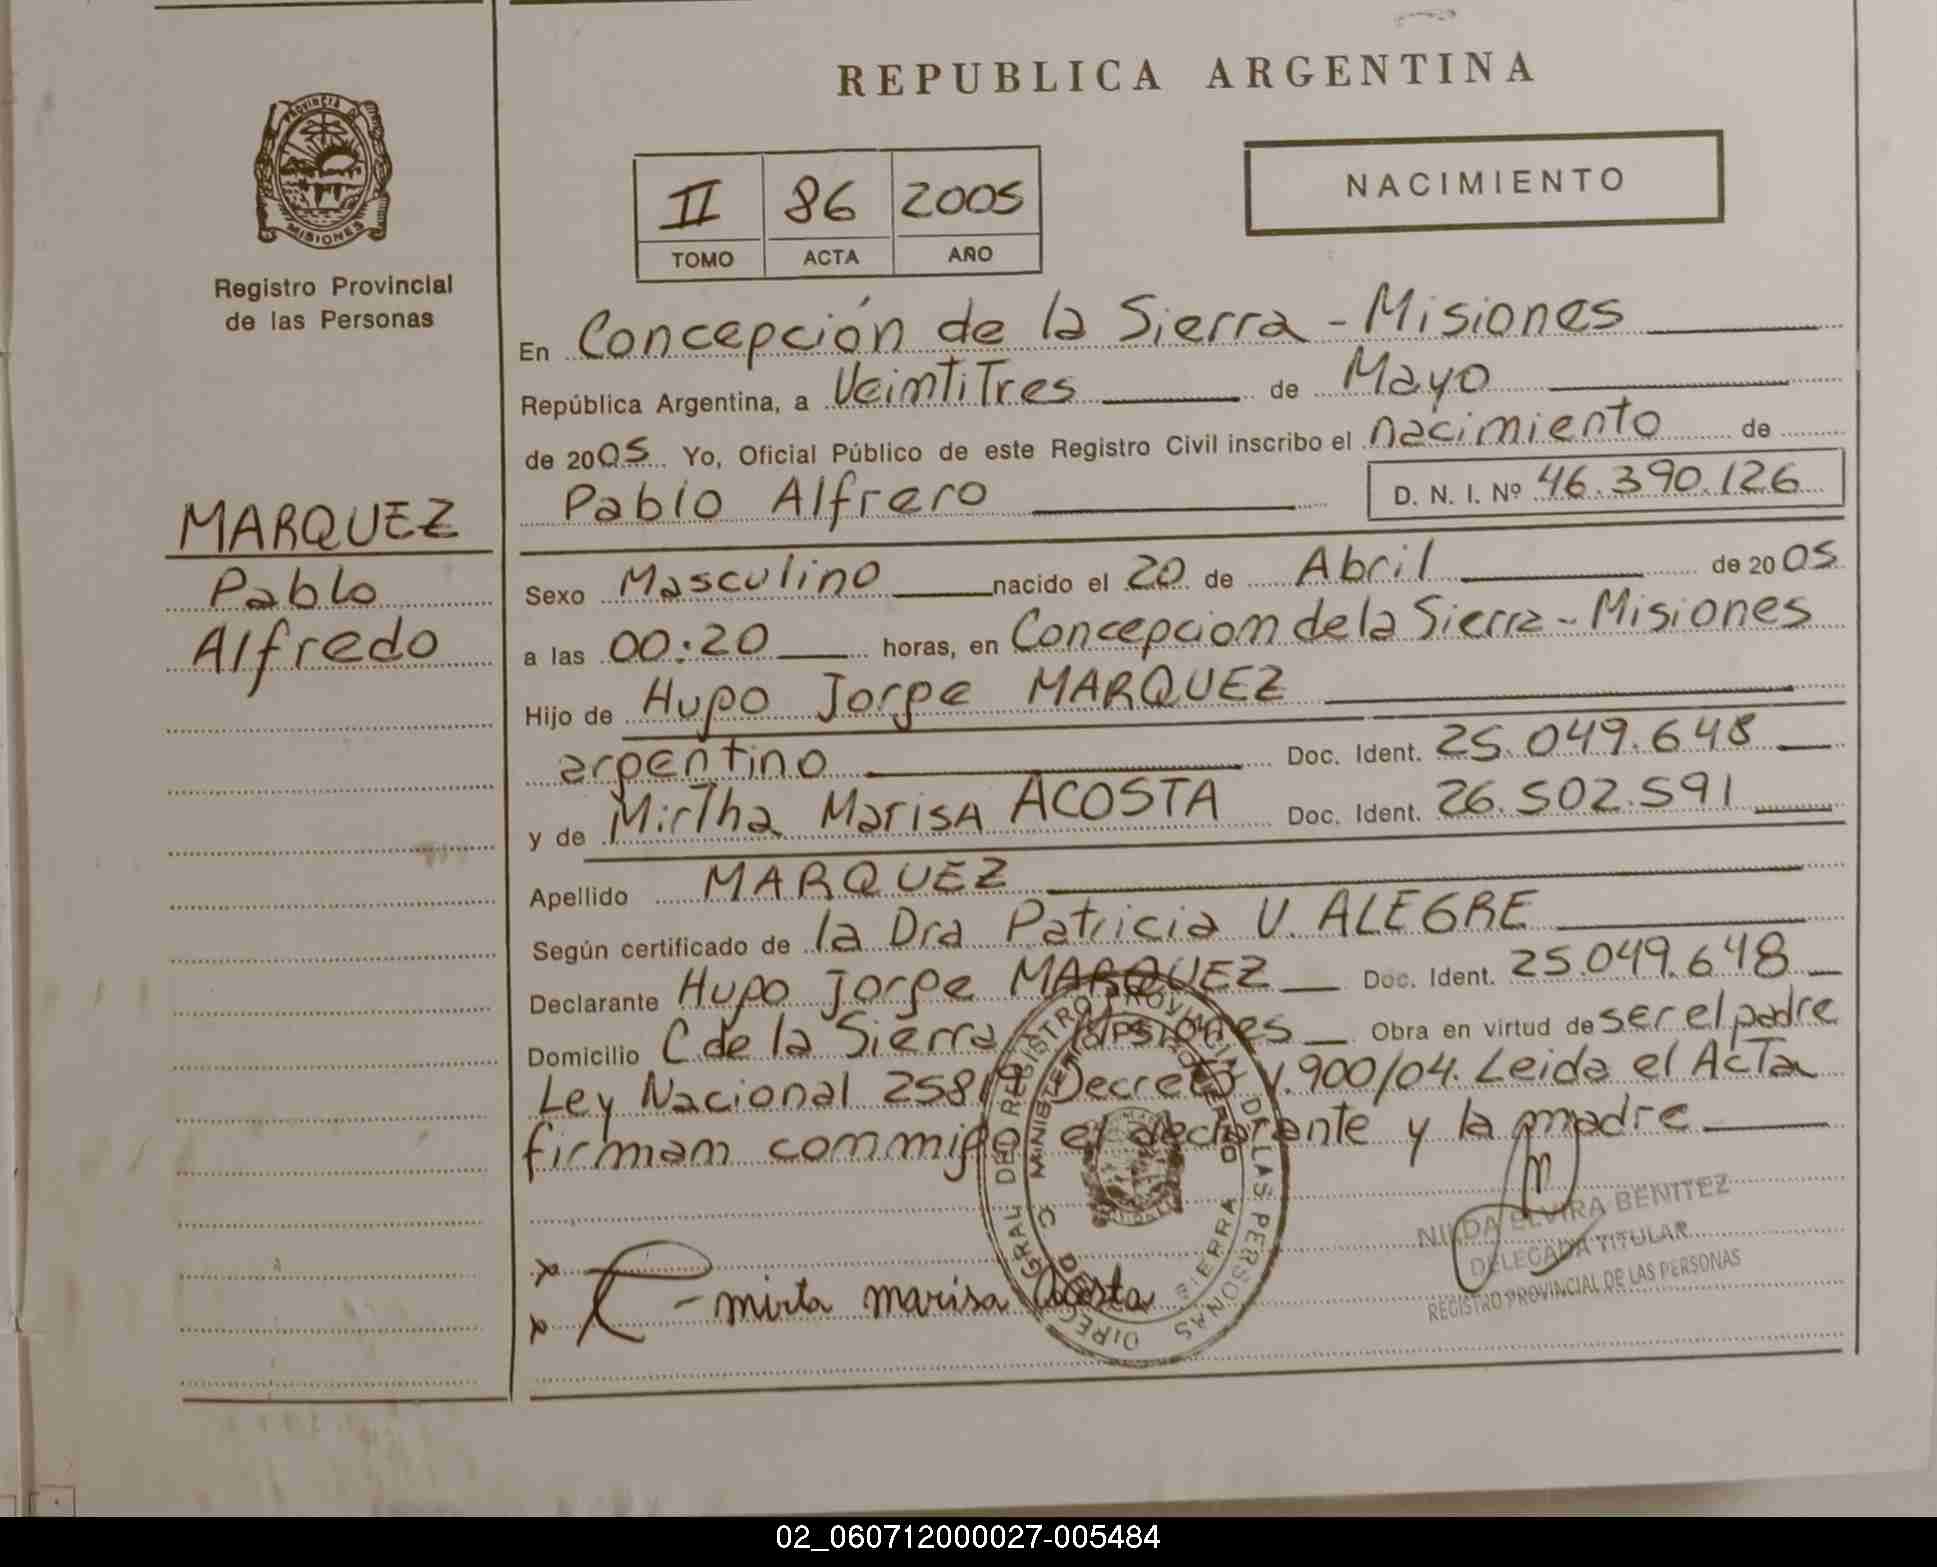 REPUBLICA ARGENTINA
PROVINCIA DE
MISIONES
Registro Provincial
de las Personas
II 86 2005
TOMO ACTA AÑO
NACIMIENTO
En Concepción de la Sierra - Misiones
República Argentina, a VeintiTres de Mayo
de 2005 Yo, Oficial Público de este Registro Civil inscribo el nacimiento de
Pablo Alfrero D. N. I. Nº 46.390.126
MARQUEZ
Pablo
Alfredo
Sexo Masculino nacido el 20 de Abril de 2005
a las 00:20 horas, en Concepciom de la Sierra - Misiones
Hijo de Hugo Jorge MARQUEZ
argentino Doc. Ident. 25.049.648
y de MirTha Marisa ACOSTA Doc. Ident. 26.502.591
Apellido MARQUEZ
Según certificado de la Dra Patricia V. ALEGRE
Declarante Hugo Jorge MARQUEZ Doc. Ident. 25.049.648
Domicilio C de la Sierra Misiones Obra en virtud de ser el padre
Ley Nacional 25819 Decreto 1.900/04. Leida el AcTa
firmam commigo el declarante y la madre
- mirta marisa Acosta
NILDA ELVIRA BENITEZ
DELEGADA TITULAR
REGISTRO PROVINCIAL DE LAS PERSONAS
02_060712000027-005484